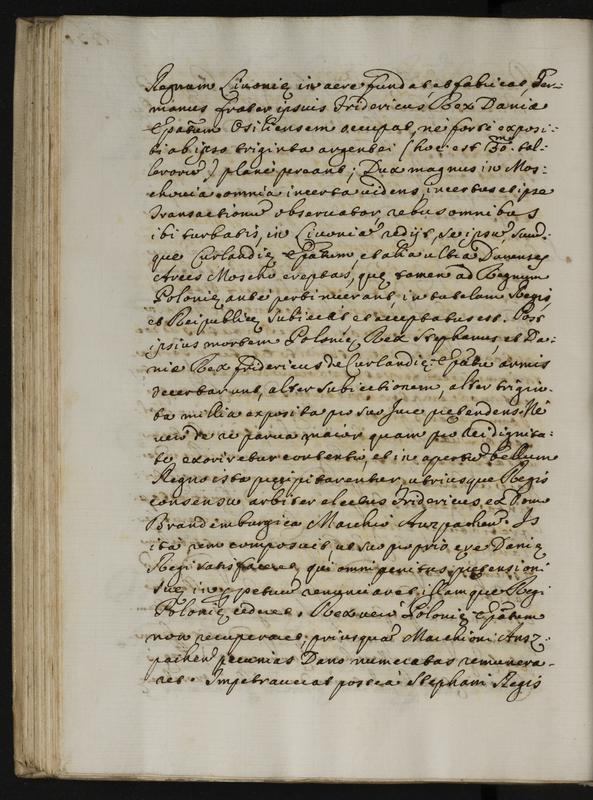 Regnum Livonię in aere fundat, et fabricat, Ger-
manus frater ipsius Fridericus Rex Daniæ
Ep̃atum Osiliensem occupat, ne forte exposi-
ti ab ipso triginta argentei (hoc est 30.ᵐᵃ tal-
lerorũ) plane pereant; Dux magnus in Mos-
chovia omnia incerta videns, incertus et ipse
Transactionũ observator, rebus omnibus
ibi turbatis, in Livoniã redijt, se ipsũ suũ-
que Curlandię Ep̃atum, et alia
Arces Moscho ereptas, quę tamen ad Regnum
Polonię antè pertinuerant, in tutelam Regis,
et Reipublicę subiecit et acceptatus est. Post
ipsius mortem Polonię Rex Stephanus, et Da-
niæ Rex Fridericus de Curlandię Ep̃atu armis
decertarunt, alter subiectionem, alter trigin-
ta millia exposita pro suo Jure prętendens. Ne
verò de re parva maior quam pro rei dignita-
te exoriretur contentio, et in apertũ bellum
Regna ista pręcipitarentur, utriusque Regis
consensu arbiter electus Fridericus ex Domo
Brandemburgica Marchio Anspachen. Is
ita rem composuit, ut suo proprio ęre Danię
Regi satisfaceret, qui omni penitus prętensioni
suę in perpetuũ renunciaret, illamque Regi
Polonię cederet. Rex verò Polonię Ep̃atum
non recuperaret, priusquã Marchioni Ansz-
pachen pecunias Dano numeratas remunera-
ret. Impetraverat posteà Stephani Regis